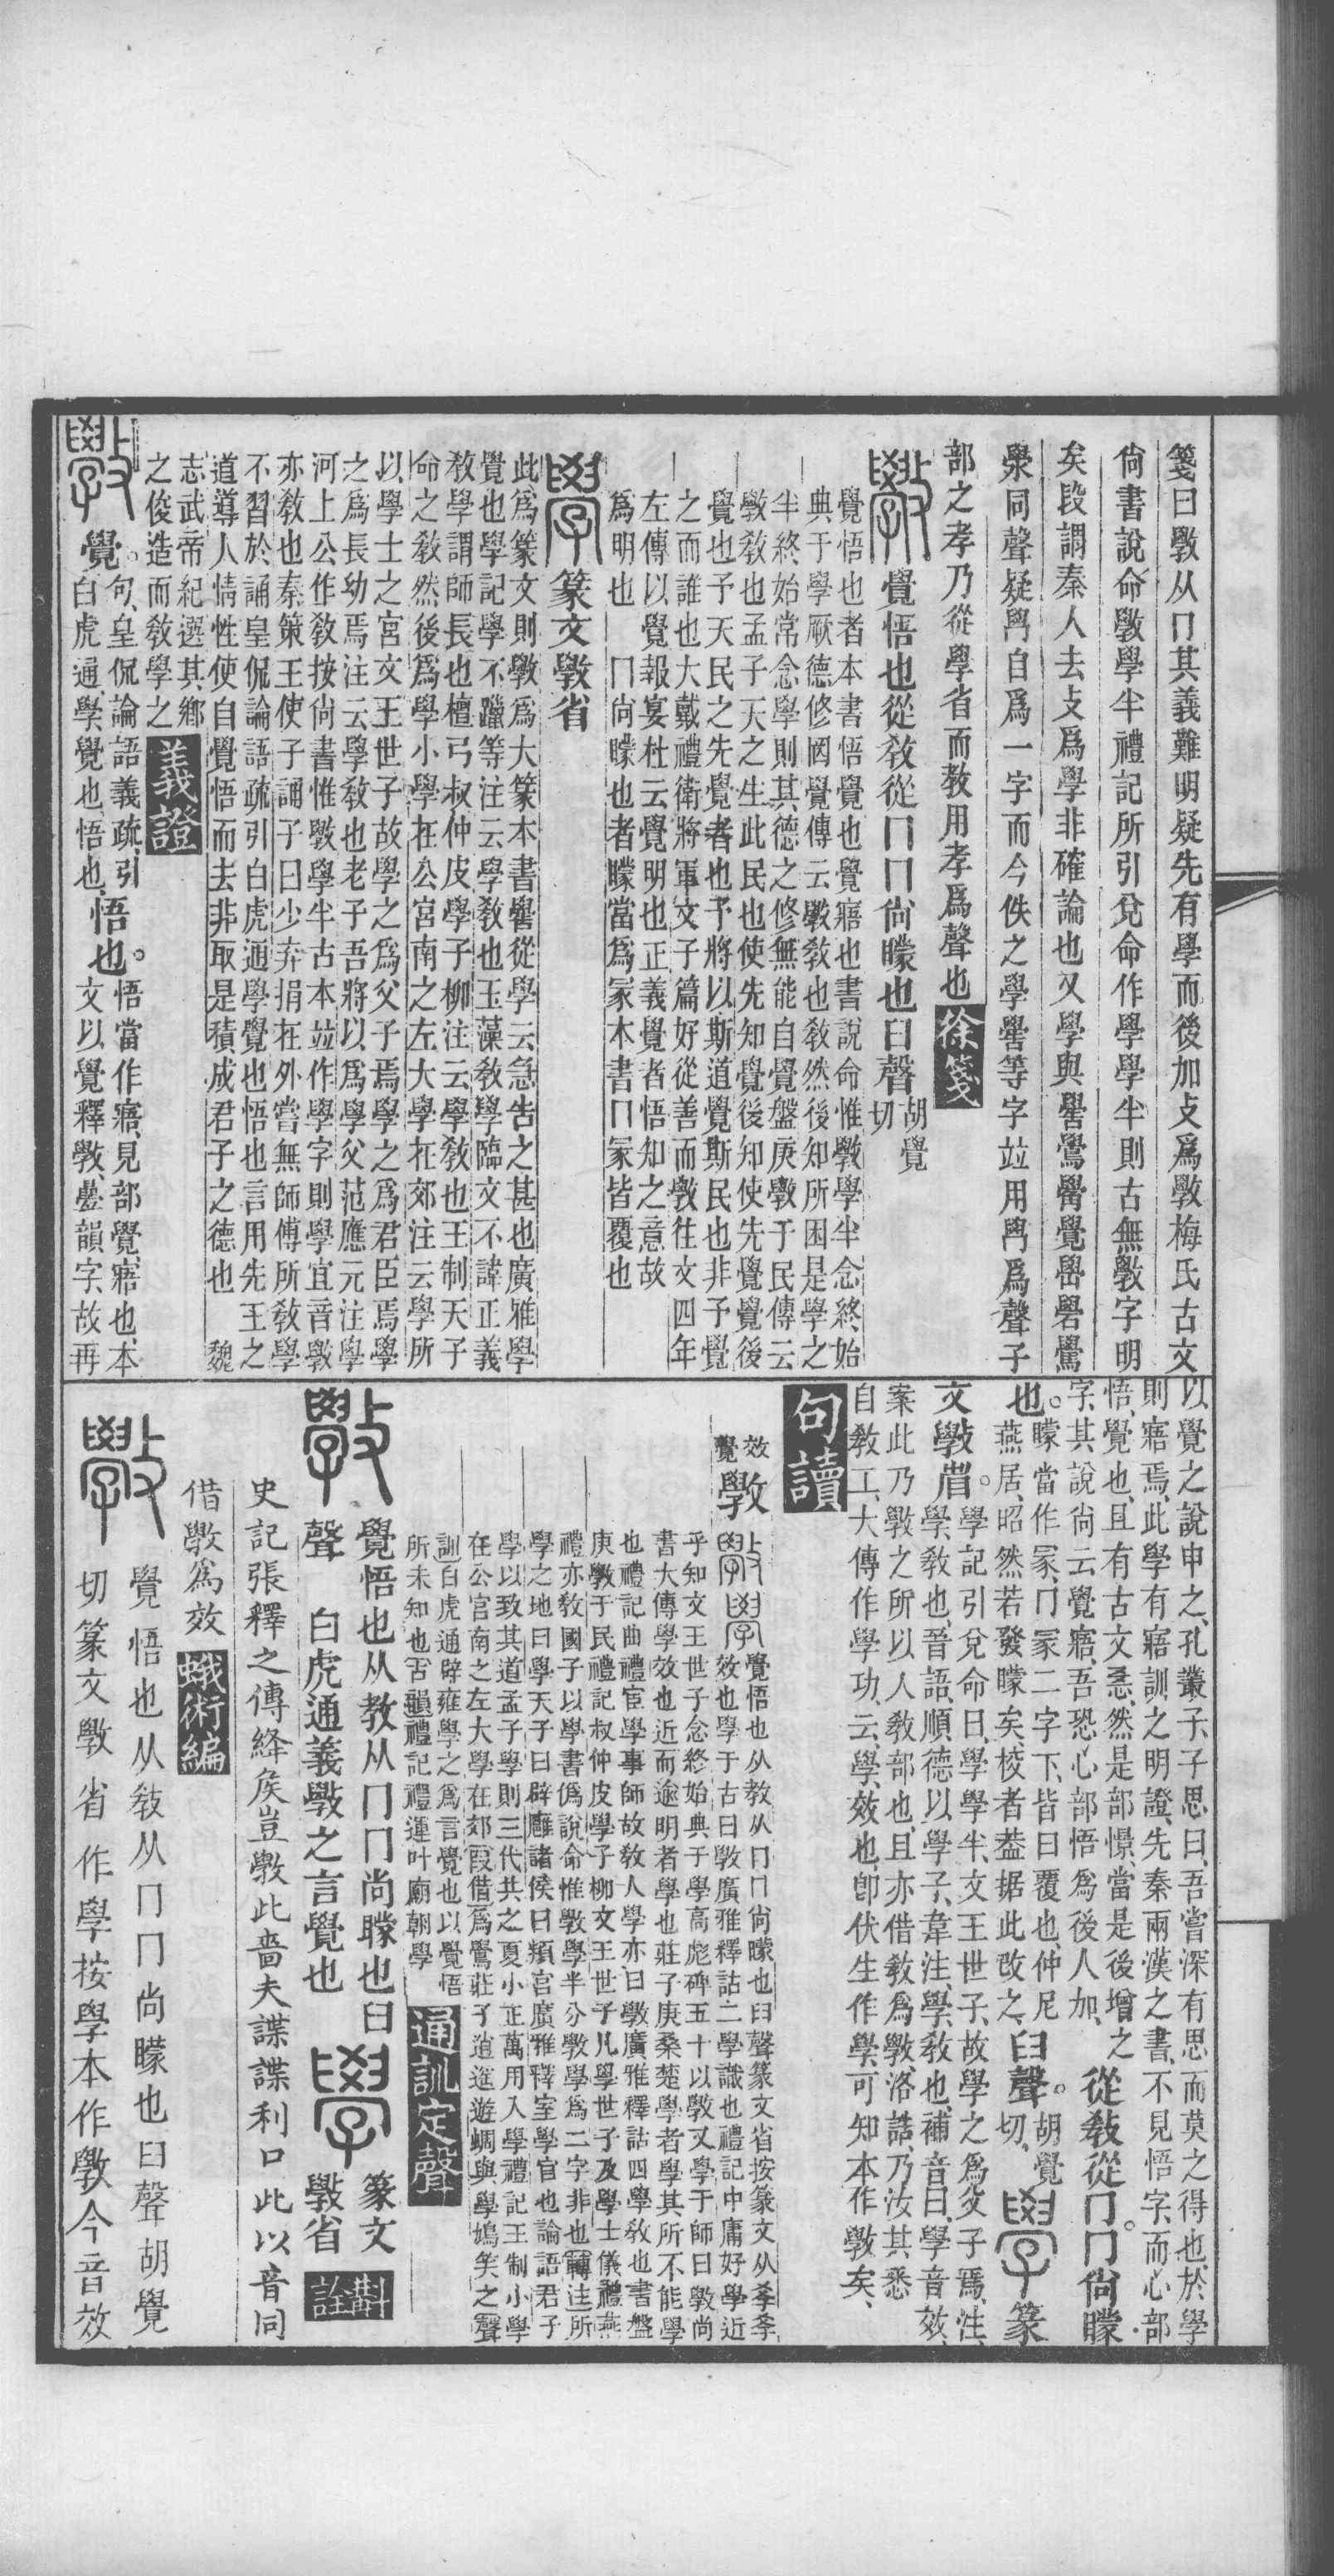 箋曰斆从冂其義難明疑先有學而後加攴爲斆梅氏古文
尙書說命斆學半禮記所引兌命作學學半則古無斆字明
矣段謂秦人去攴爲學非確論也又學與嚳鷽黌覺嶨礐鷽
泉同聲疑𦥯自爲一字而今佚之學嚳等字竝用𦥯爲聲子
部之孝乃從學省而敎用孝爲聲也 徐箋
斆 覺悟也從敎從冂冂尙矇也𦥑聲 胡覺切
覺悟也者本書悟覺也覺寤也書說命惟斆學半念終始
典于學厥德修罔覺傳云斆敎也敎然後知所困是學之
半終始常念學則其德之修無能自覺盤庚斆于民傳云
斆敎也孟子天之生此民也使先知覺後知使先覺覺後
覺也予天民之先覺者也予將以斯道覺斯民也非予覺
之而誰也大戴禮衛將軍文子篇好從善而斆往文四年
左傳以覺報宴杜云覺明也正義覺者悟知之意故
爲明也 冂尙矇也者矇當爲冡本書冂冡皆覆也
學 篆文斆省
此爲篆文則斆爲大篆本書嚳從學云急告之甚也廣雅學
覺也學記學不躐等注云學敎也玉藻敎學臨文不諱正義
敎學謂師長也檀弓叔仲皮學子柳注云學敎也王制天子
命之敎然後爲學小學在公宮南之左大學在郊注云學所
以學士之宮文王世子故學之爲父子焉學之爲君臣焉學
之爲長幼焉注云學敎也老子吾將以爲學父范應元注學
河上公作敎按尙書惟斆學半古本竝作學字則學宜音斆
亦敎也秦策王使子誦子曰少弃捐在外嘗無師傅所敎學
不習於誦皇侃論語疏引白虎通學覺也悟也言用先王之
道導人情性使自覺悟而去非取是積成君子之德也 魏
志武帝紀選其鄉
之俊造而敎學之 義證
斆 覺。句、皇侃論語義疏、引白虎通、學覺也、悟也、悟也。悟當作寤、見部覺、寤也、本文以覺釋斆、疊韻字、故再
以覺之說申之、孔叢子、子思曰、吾嘗深有思而莫之得也、於學
則寤焉、此學有寤訓之明證、先秦兩漢之書、不見悟字、而心部
悟、覺也、且有古文𢛓、然是部憬、當是後增、之
字、其說尙云覺寤、吾恐心部悟爲後人加、從敎從冂。冂尙矇
也。矇當作冡、冂冡二字下、皆曰覆也、仲尼燕居、昭然若發矇矣、校者葢据此改之、𦥑聲。胡覺切、學 篆
文斆省。學記引兌命曰、學學半、文王世子、故學之爲父子焉、注、學、敎也、晉語、順德以學子、韋注、學、敎也、補音曰、學音效、
案此乃斆之所以入敎部也、且亦借敎爲斆、洛誥、乃汝其悉
自敎工、大傳作學功、云、學、效也、卽伏生作學、可知本作斆矣、
句讀
斆 效覺 斆學 覺悟也从教从冂冂尙矇也𦥑聲篆文省按篆文从孝孝
效也學于古曰斆廣雅釋詁二學識也禮記中庸好學近
乎知文王世子念終始典于學高彪碑五十以斆又學于師曰斆尚
書大傳學效也近而逾明者學也莊子庚桑楚學者學其所不能學
也禮記曲禮宦學事師故敎人學亦曰斆廣雅釋詁四學敎也書盤
庚斆于民禮記叔仲皮學子柳文王世子凡學世子及學士儀禮燕
禮亦敎國子以學書僞說命惟斆學半分斆學爲二字非也轉注所
學之地曰學天子曰辟廱諸侯曰頖宮廣雅釋室學官也論語君子
學以致其道孟子學則三代共之夏小正萬用入學禮記王制小學
在公宮南之左大學在郊叚借爲鷽莊子逍遙遊蜩與學鳩笑之聲
訓白虎通辟雍學之爲言覺也以覺悟
所未知也古韻禮記禮運叶廟朝學 通訓定聲
斆 覺悟也从教从冂冂尚矇也𦥑
聲 白虎通義斆之言覺也 學 篆文斆省 斠詮
史記張釋之傳絳矦豈斆此嗇夫諜諜利口此以音同
借斆爲效 蛾術編
斆 覺悟也从敎从冂冂尚矇也𦥑聲胡覺
切篆文斆省作學按學本作斆今音效